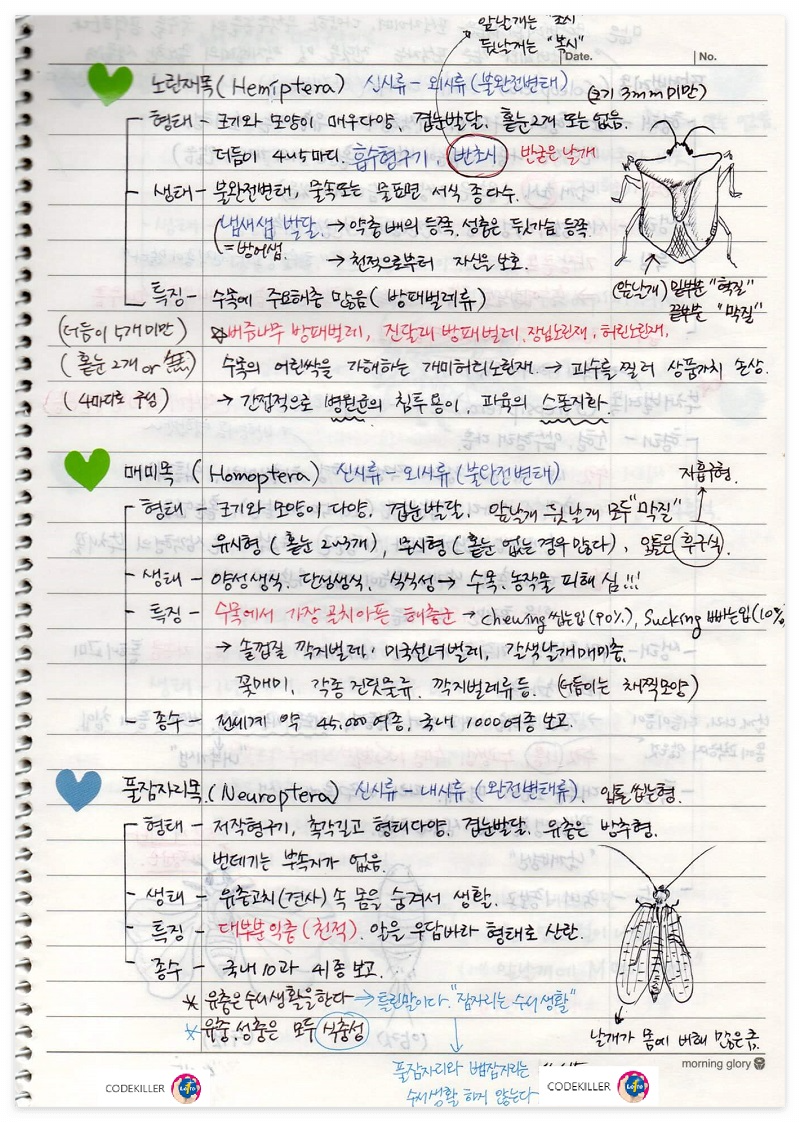 앞날개는 "초시"
뒷날개는 "복시"
Date.
No.
노린재목 (Hemiptera) 신시류 - 외시류 (불완전변태)
(크기 3mm 미만)
형태 - 크기와 모양이 매우다양, 겹눈발달, 홑눈2개 또는 없음.
더듬이 4~5마디, 흡수형구기, 반초시 반굳은 날개
생태 - 불완전변태, 물속또는 물표면 서식 종 다수.
(냄새샘 발달. → 약충 배의 등쪽, 성충은 뒷가슴 등쪽.
= 방어샘. → 천적으로부터 자신을 보호.
(앞날개) 밑부분 "혁질"
끝부분 "막질"
특징 - 수목에 주요해충 많음 (방패벌레류)
(더듬이 5개미만)
버즘나무 방패벌레, 진달래 방패벌레, 장님노린재, 허리노린재,
(홑눈 2개 or 無)
수목의 어린싹을 가해하는 개미허리노린재. → 과수를 찔러 상품가치 손상.
(4마디로 구성)
→ 간접적으로 병원균의 침투 용이, 과육의 스폰지화.
매미목 (Homoptera) 신시류 - 외시류 (불완전변태)
자흡구형.
형태 - 크기와 모양이 다양, 겹눈발달, 앞날개 뒷날개 모두 "막질"
유시형 (홑눈 2~3개), 무시형 (홑눈 없는 경우 많다), 입틀은 후구식.
생태 - 양성생식, 단성생식, 식식성 → 수목, 농작물 피해 심!!!
특징 - 수목에서 가장 골치아픈 해충군 → chewing 씹는입(90%), Sucking 빠는입(10%
→ 솔껍질 깍지벌레, 미국선녀벌레, 갈색날개매미충,
꽃매미, 각종 진딧물류, 깍지벌레류 등. (더듬이는 채찍모양)
종수 - 전세계 약 45,000여종, 국내 1000여종 보고.
풀잠자리목 (Neuroptera) 신시류 - 내시류 (완전변태류). 입틀 씹는형.
형태 - 저작형구기, 촉각길고 형태다양, 겹눈발달. 유충은 방추형.
번데기는 부속지가 없음.
생태 - 유충고치(견사) 속 몸을 숨겨서 생활.
특징 - 대부분 익충 (천적). 알을 우담바라 형태로 산란.
종수 - 국내 10과 41종 보고.
* 유충은 수서생활을한다 → 틀린말이다. "잠자리는 수서생활"
* 유충, 성충은 모두 식충성
날개가 몸에 비해 많은 큼.
풀잠자리와 뱀잠자리는
수서생활 하지 않는다
morning glory
CODEKILLER
CODEKILLER